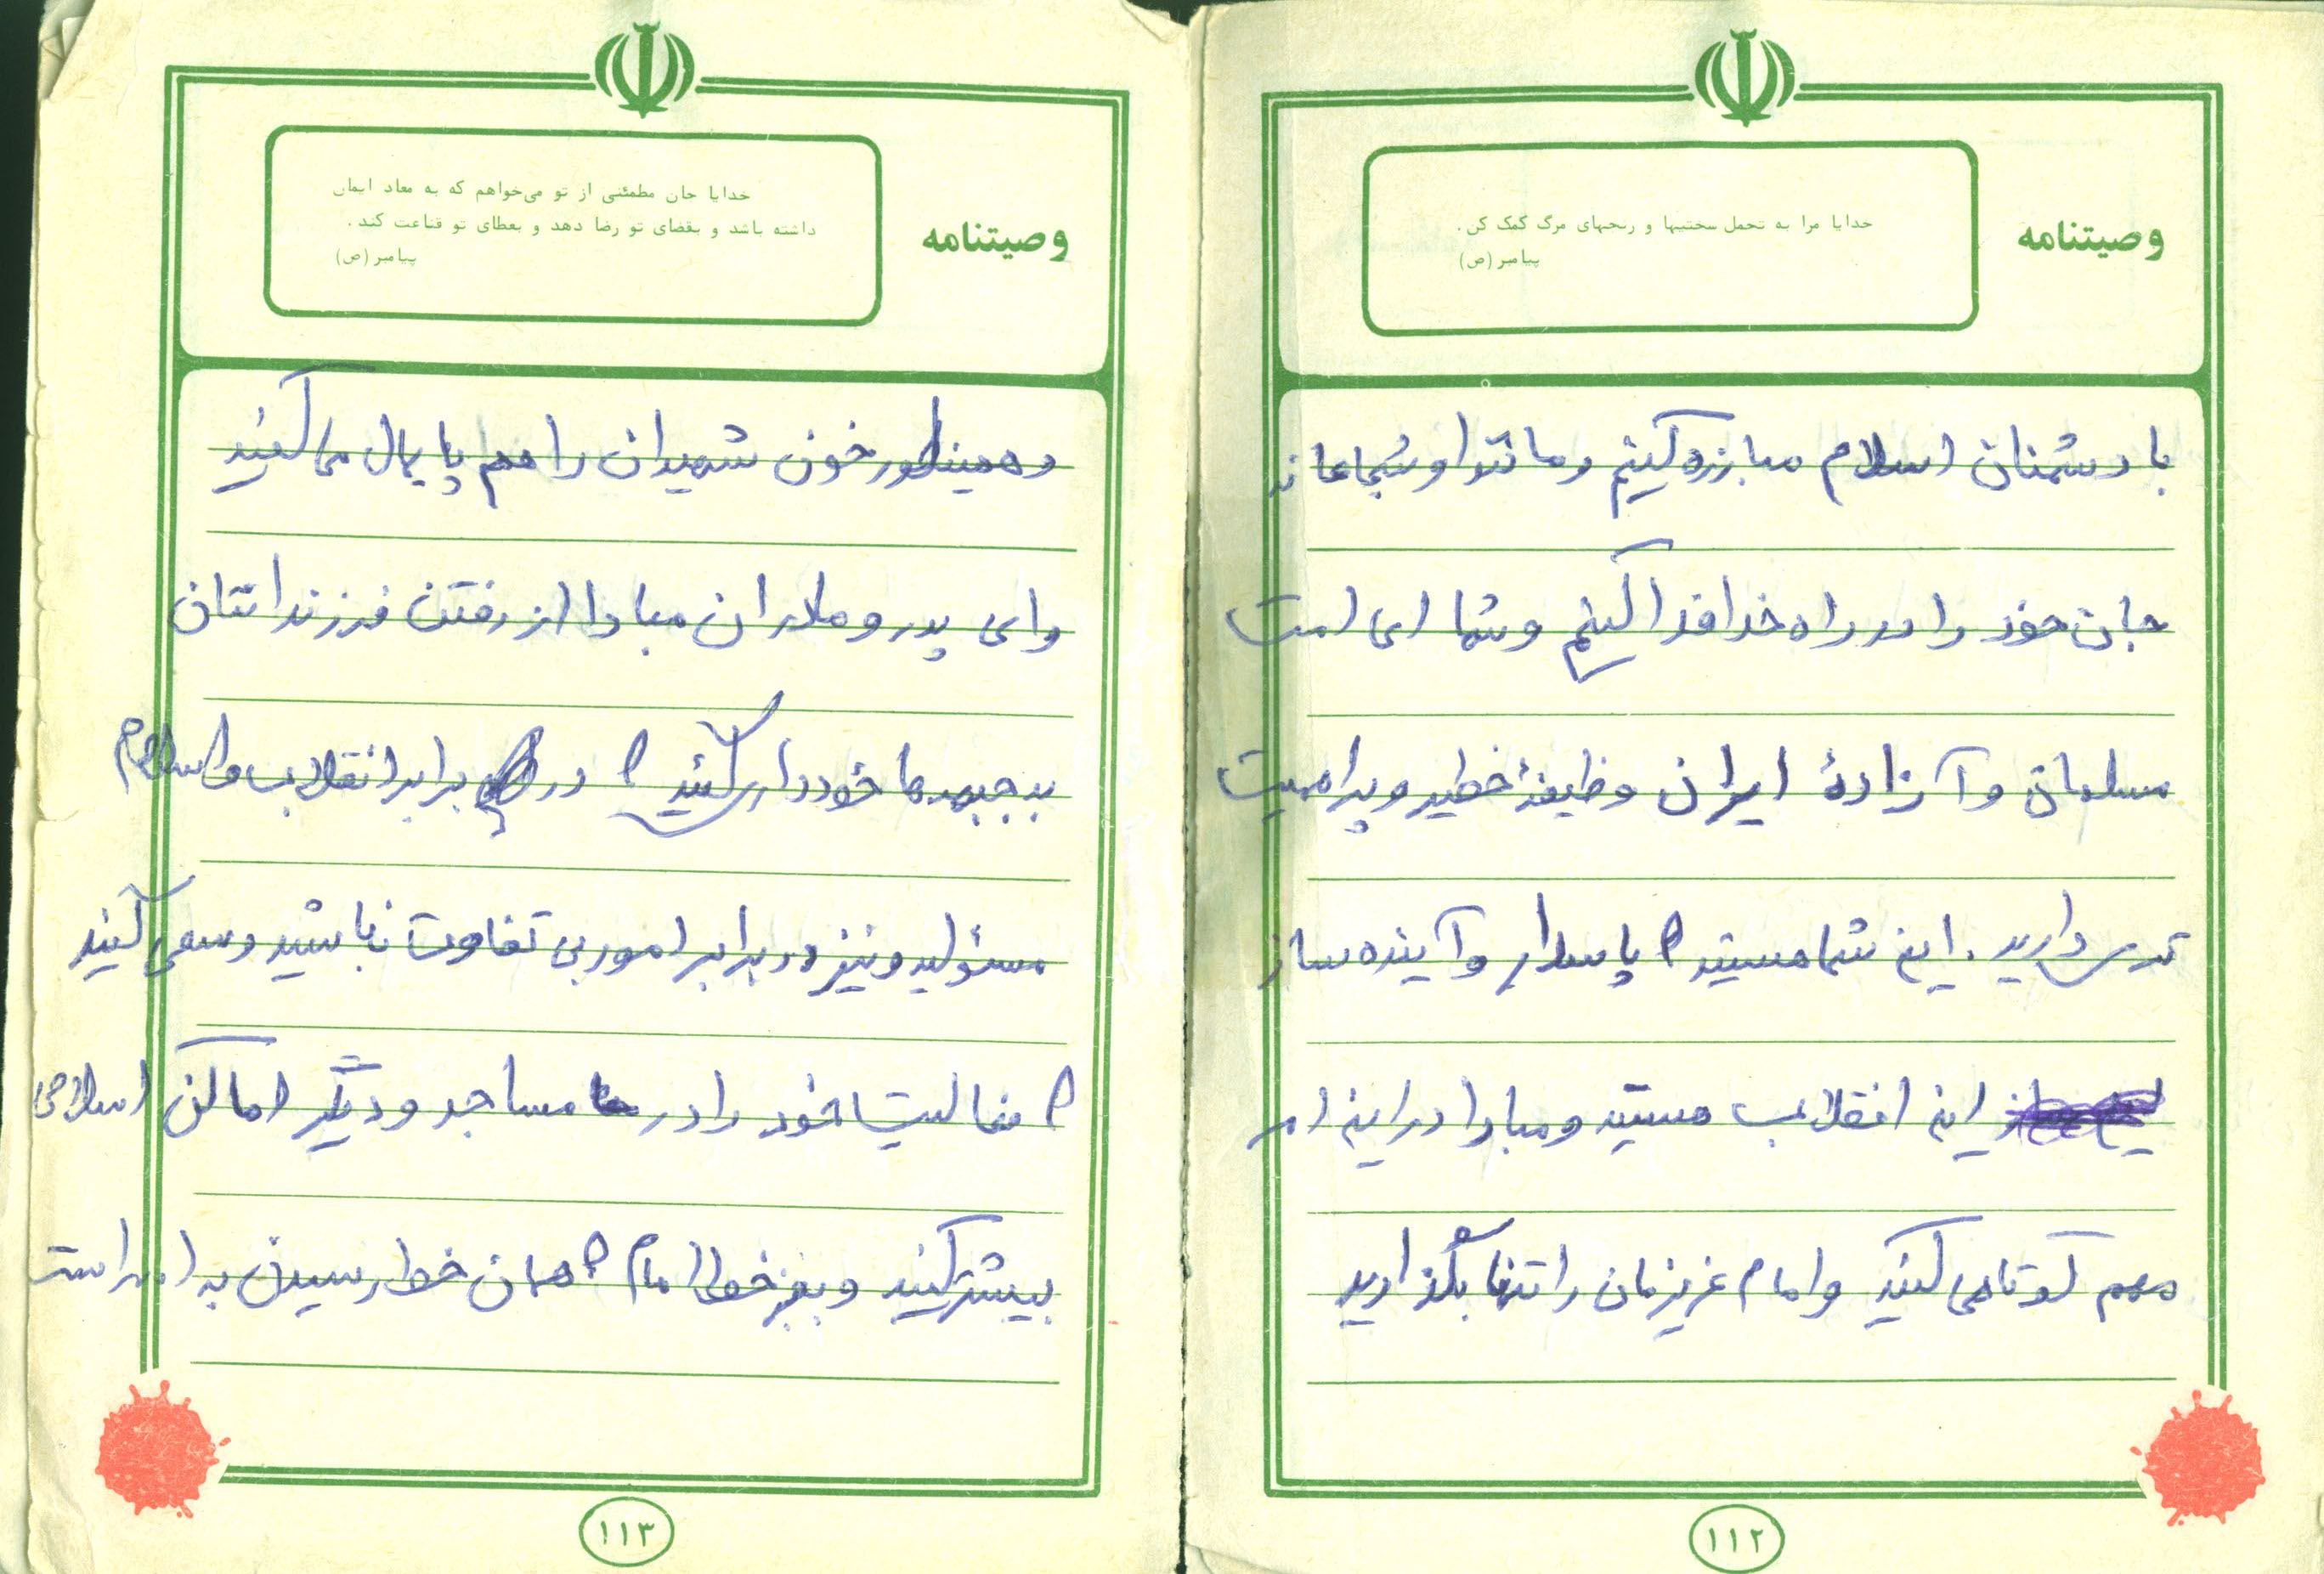 وصیتنامه
خدایا مرا به تحمل سختیها و رنجهای مرگ کمک کن .
پیامبر (ص)
با دشمنان اسلام مبارزه کنیم و مانند او شجاعانه
جان خود را در راه خدا فدا کنیم و شما ای امت
مسلمان و آزادهٔ ایران وظیفهٔ خطیر و پراهمیت
تری دارید . این شما هستید که پاسدار و آینده ساز
این انقلاب هستید و مبادا در این امر
مهم کوتاهی کنید و امام عزیزمان را تنها بگذارید
۱۱۲
وصیتنامه
خدایا جان مطمئنی از تو می‌خواهم که به معاد ایمان
داشته باشد و بقضای تو رضا دهد و بعطای تو قناعت کند .
پیامبر (ص)
و همینطور خون شهیدان را هم پایمال کنید
و ای پدر و مادران مبادا از رفتن فرزندانتان
به جبهه ها خودداری کنید که در برابر انقلاب و اسلام
مسئولید و نیز در برابر امور بی تفاوت نباشید و سعی کنید
که فعالیت خود را در مساجد و دیگر اماکن اسلامی
بیشتر کنید و بجز خط امام که همان خط رسیدن به است
۱۱۳